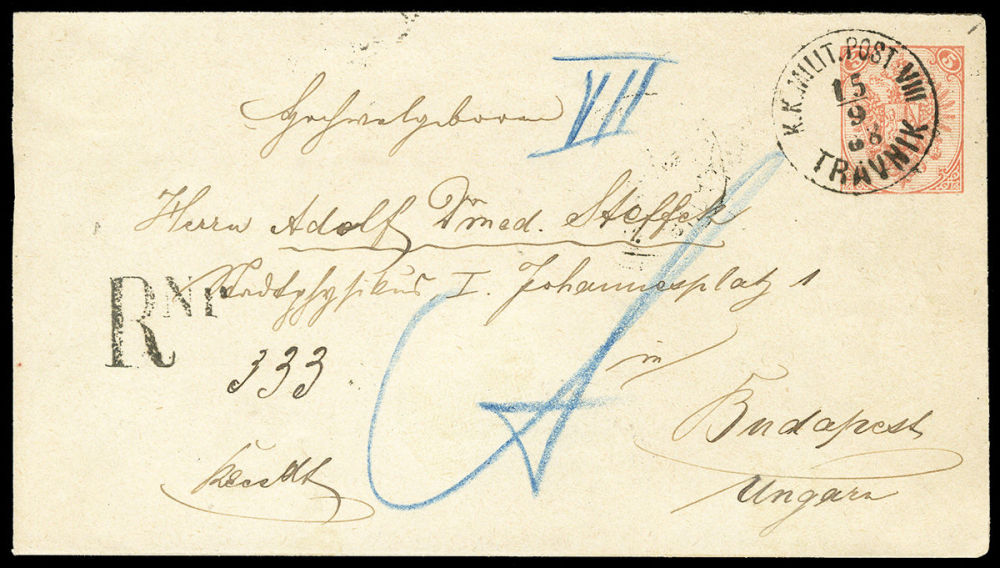 VII
K.K. MILIT. POST VIII
15
9
TRAVNIK
5
Hochwolgeboren
Herrn Adolf Dr med. Steffek
Stadtphysikus I. Johannesplatz 1
R Nr
333
in
Budapest
Ungarn